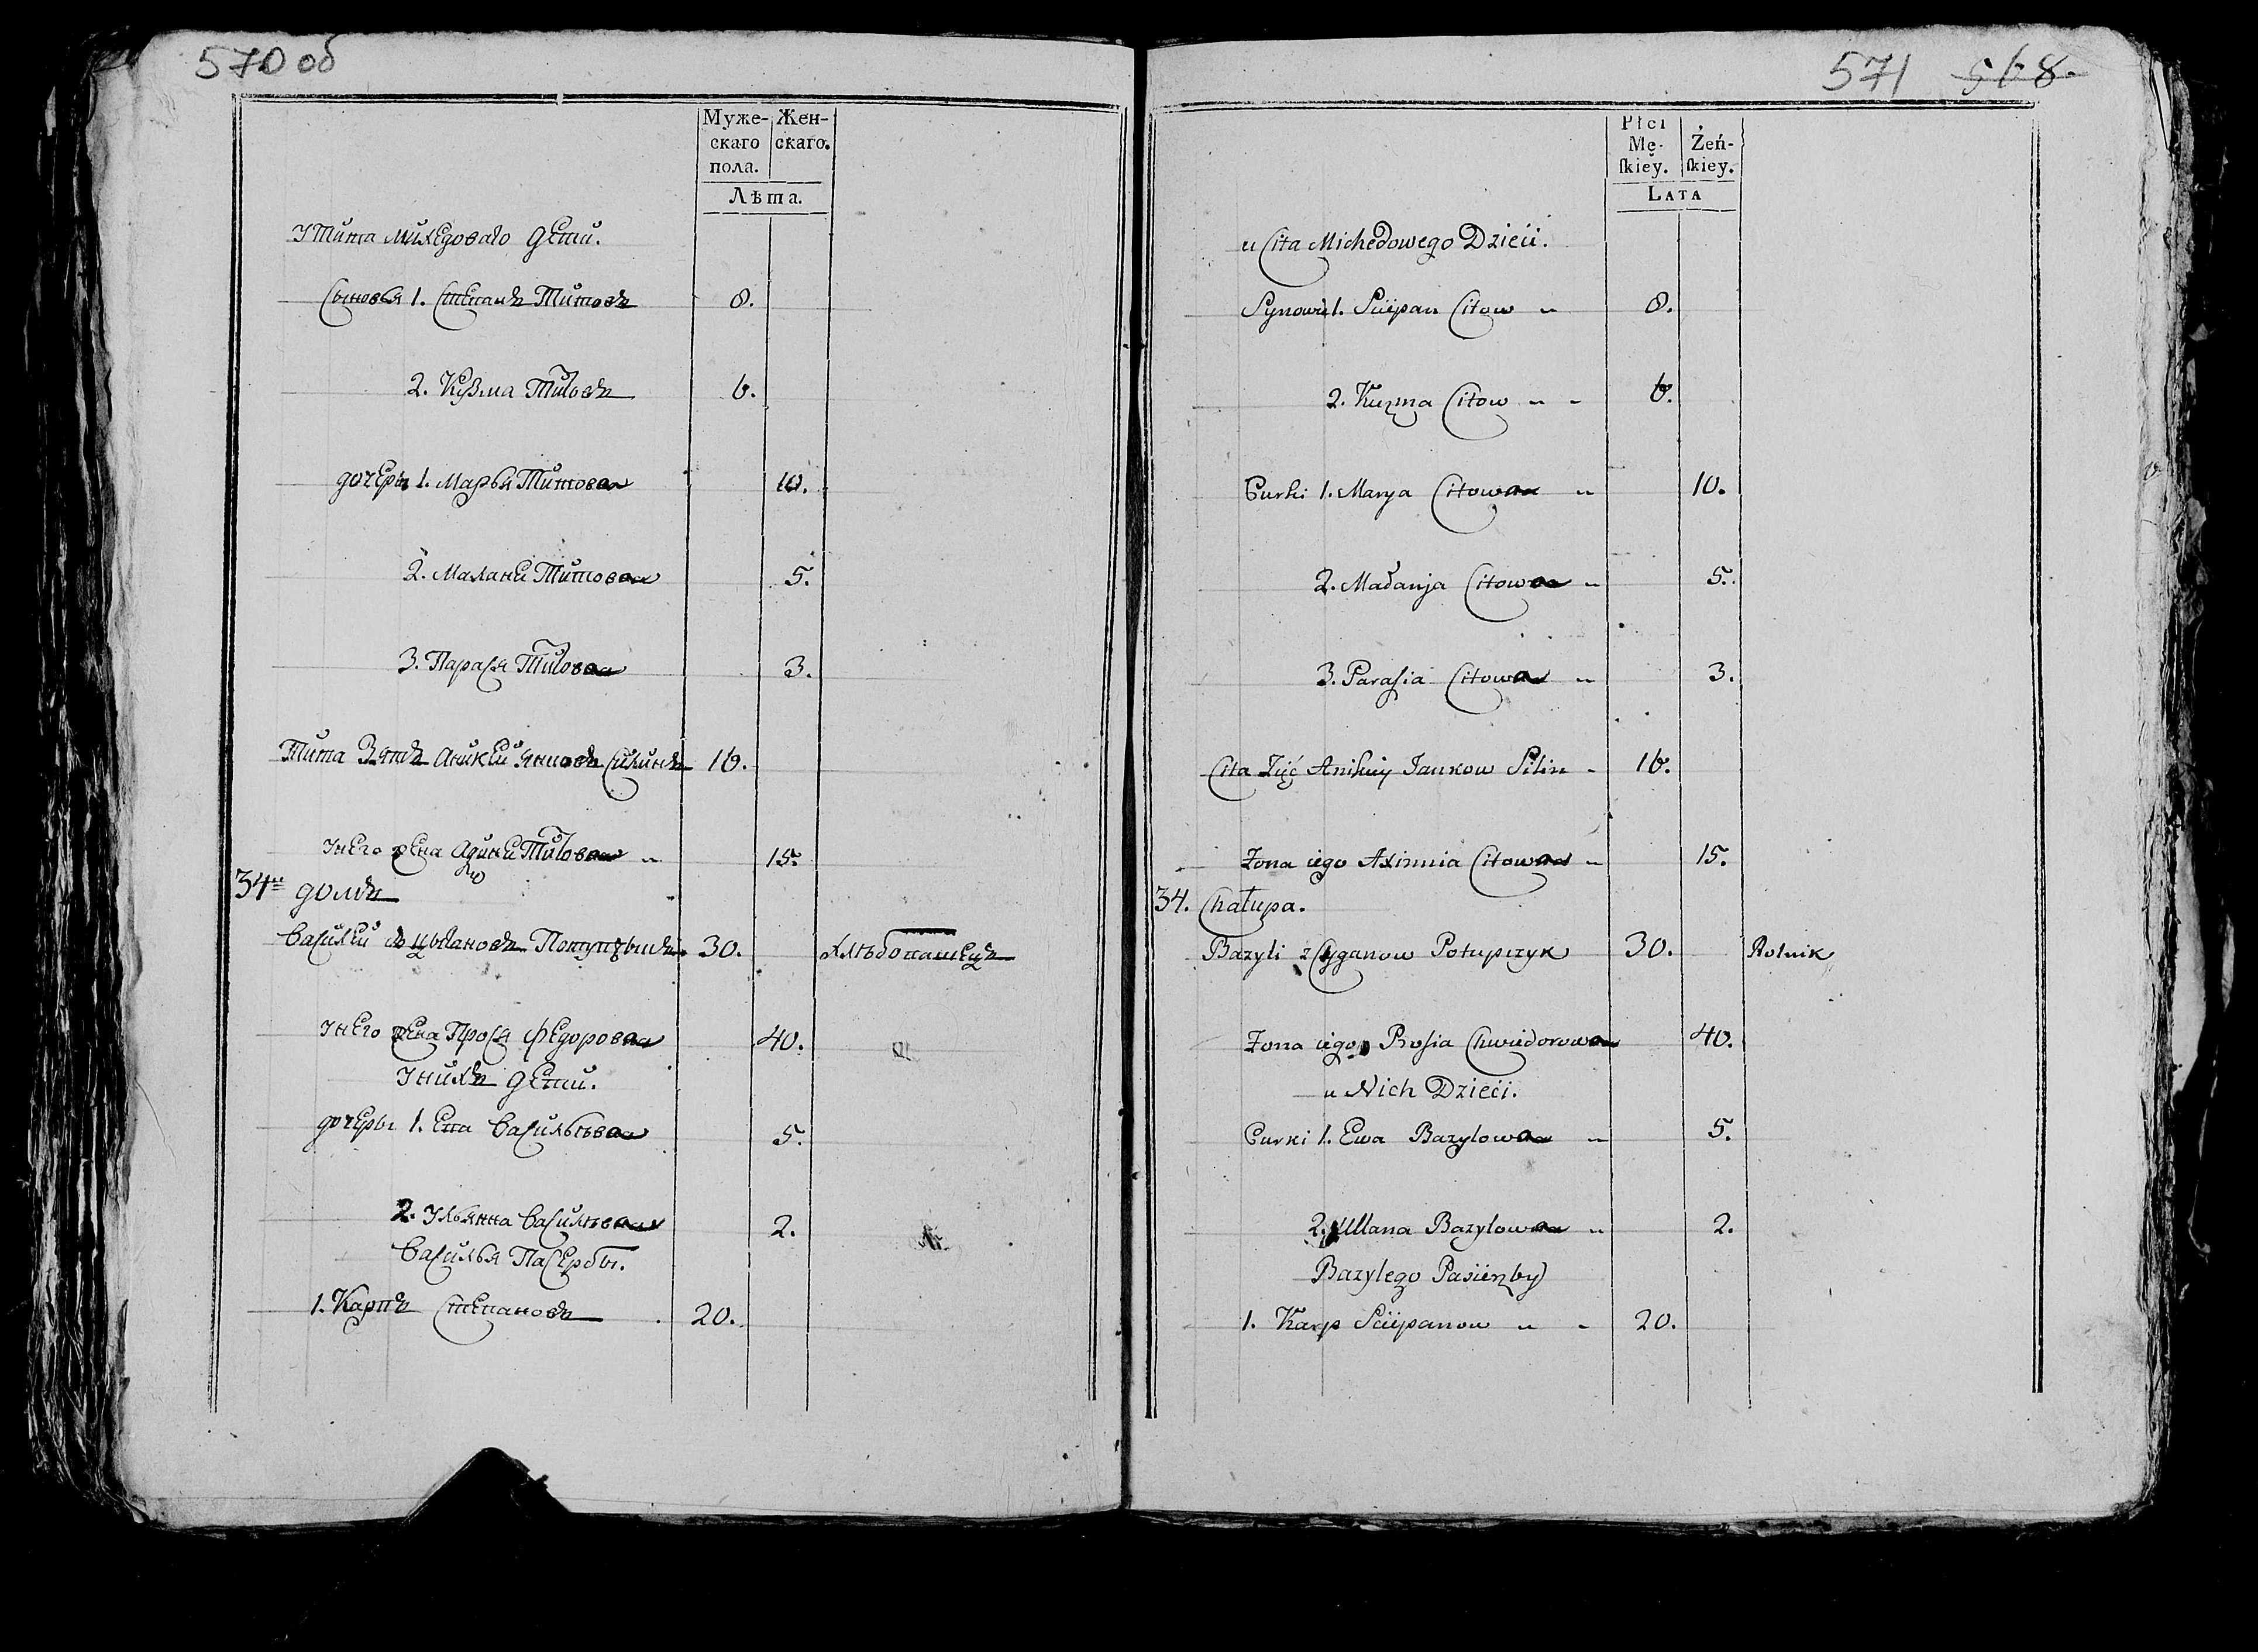 570 об
Муже-
скаго
пола.
Жен-
скаго.
Лѣта.
У Тита Михедоваго дети.
Сыновья 1. Степанъ Титовъ 8.
2. Кузма Титовъ 6.
дочеры 1. Марья Титова 10.
2. Малани Титова 5.
3. Парася Титова 3.
Тита Зять Аникей Янковъ Силинъ 16.
У него жена Титова 15.
34й домъ
Василей Цыгановъ 30. хлѣбопашецъ
У него жена Прося Федорова 40.
У нихъ дети.
дочеры 1. Ева Васильева 5.
2. Ульянна Васильева 2.
Василья Пасербы.
1. Карпъ Степановъ 20.
571 568.
Płci
Mę-
ſkiey.
Żeń-
ſkiey.
LATA
u Cita Michedowego Dzieci.
Synowie 1. Sciepan Citow 8.
2. Kuzma Citow 6.
Curki 1. Marya Citowa 10.
2. Małanja Citowa 5.
3. Parasia Citowa 3.
Cita Zięć Anikiey Jankow Silin 16.
Żona iego Axinnia Citowa 15.
34. Chałupa.
Bazyli z Cyganow Potupczyk 30. Rolnik
Żona iego Prosia Chwiedorowa 40.
u Nich Dzieci.
Curki 1. Ewa Bazylowa 5.
2. Ullana Bazylowa 2.
Bazylego Pasierzby
1. Karp Sciepanow 20.